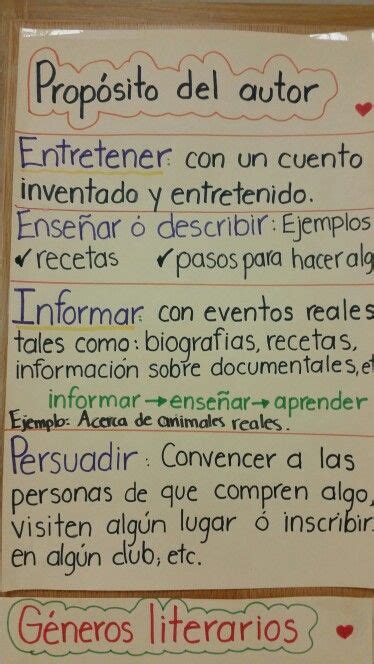 Propósito del autor
Entretener: con un cuento
inventado y entretenido.
Enseñar ó describir: Ejemplos
✓recetas ✓pasos para hacer alg
Informar: con eventos reales
tales como: biografias, recetas,
información sobre documentales, et
informar → enseñar → aprender
Ejemplo: Acerca de animales reales.
Persuadir: Convencer a las
personas de que compren algo,
visiten algún lugar ó inscribir
en algún club, etc.
Géneros literarios